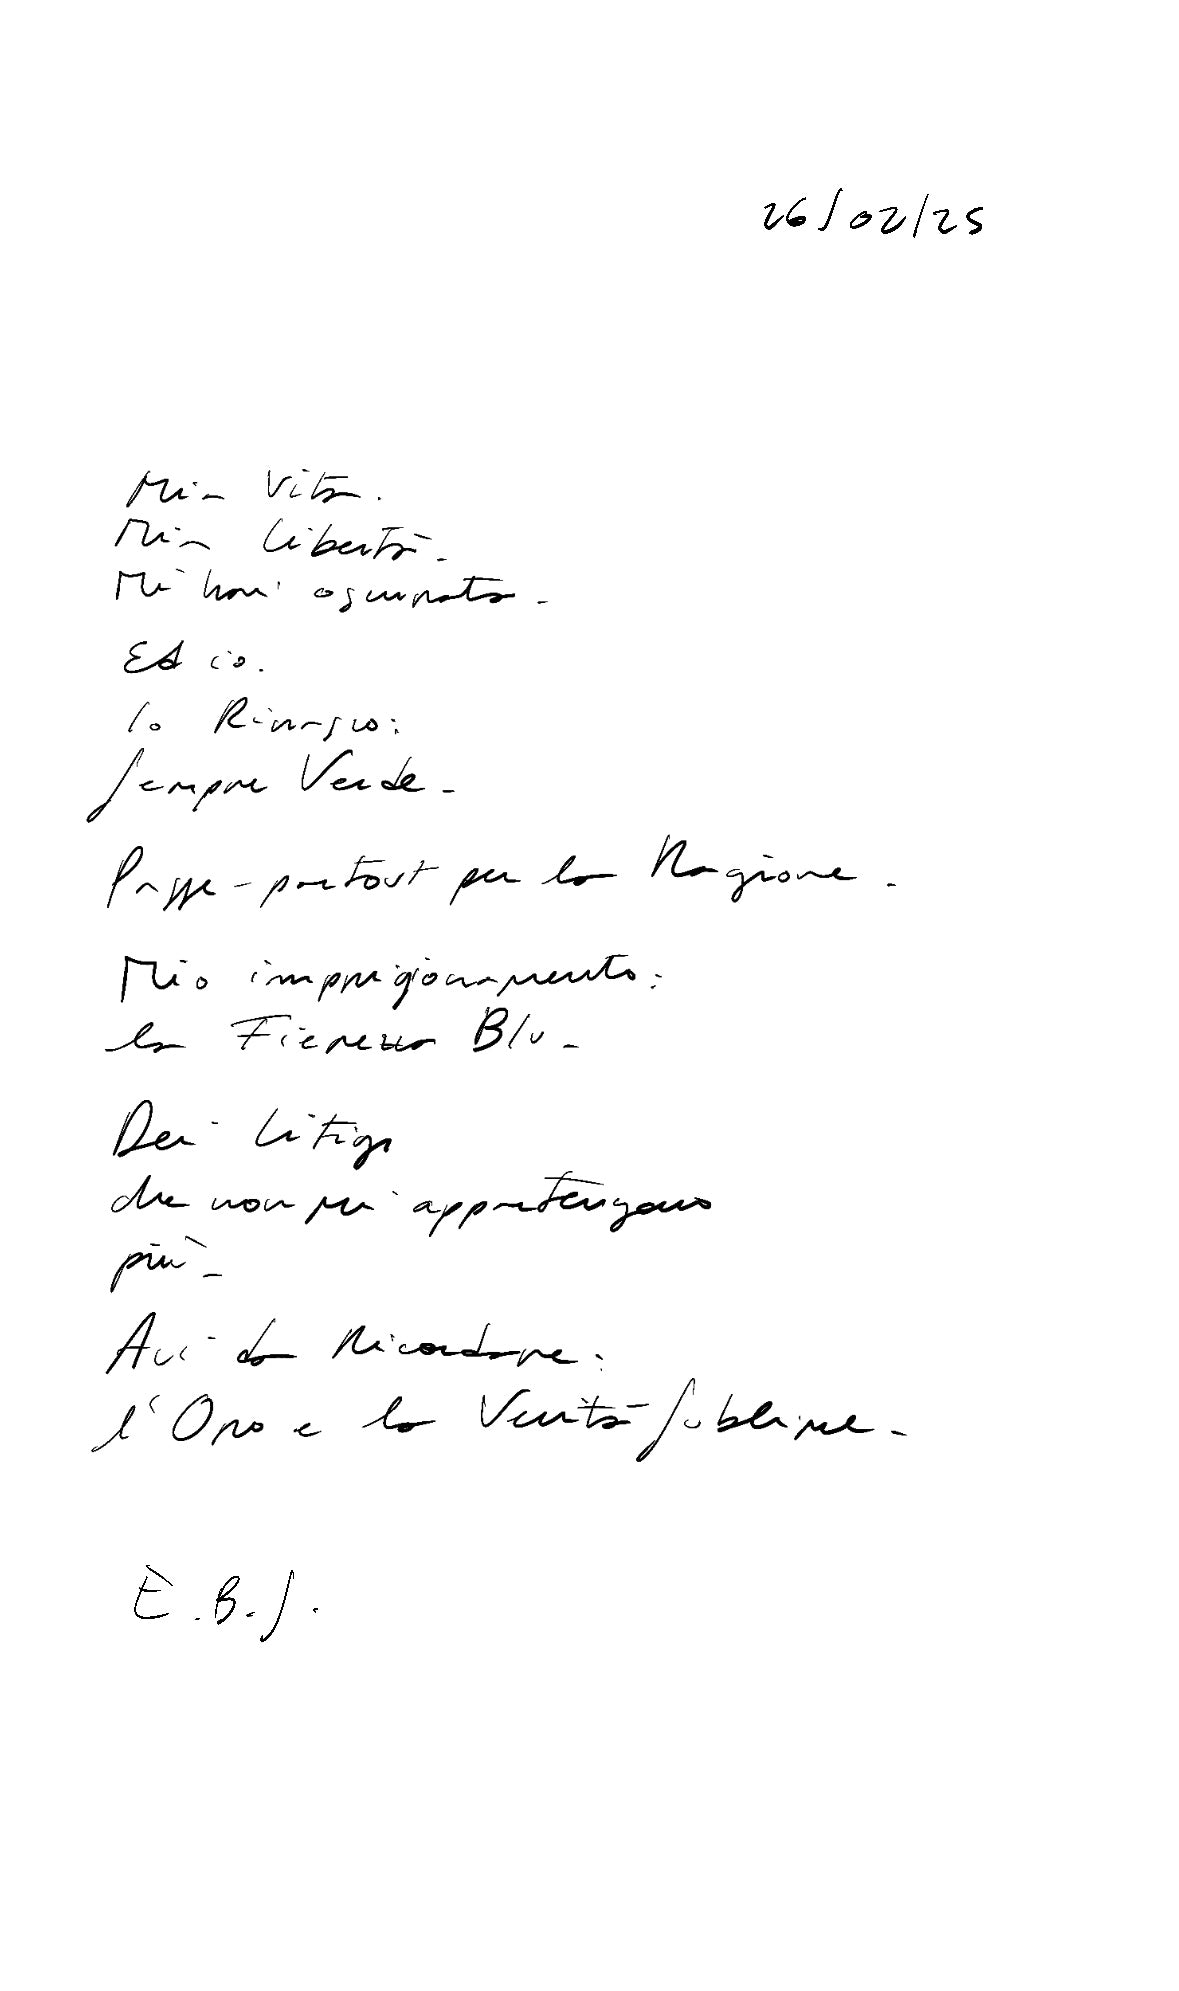 26/02/25
Mia Vita.
Mia Libertà.
Mi hai
Ed io.
Io Rinasco:
Sempre Verde.
Passe-partout per la Ragione.
Mio imprigionamento:
la Fierezza Blu.
Dei Litigi
che non mi appartengono
più.
Avi da Ricordare:
l'Oro e la Verità Sublime.
È.B.S.